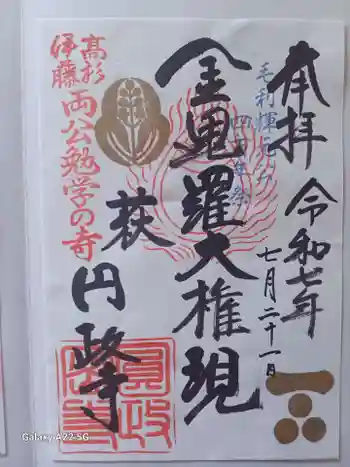 奉拝
令和七年
七月二十一日
毛利輝元公
四百年祭
金毘羅大権現
萩
円政寺
高杉
伊藤
両公勉学の寺
Galaxy A22 5G